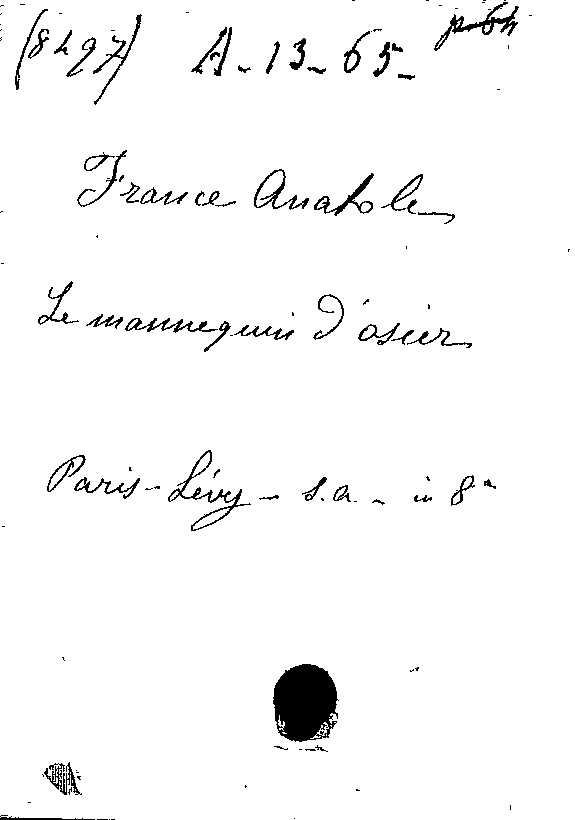 (8497) A-13-65-
France Anatole
Le mannequin d'osier
Paris-Lévy - s.a. - in 8°